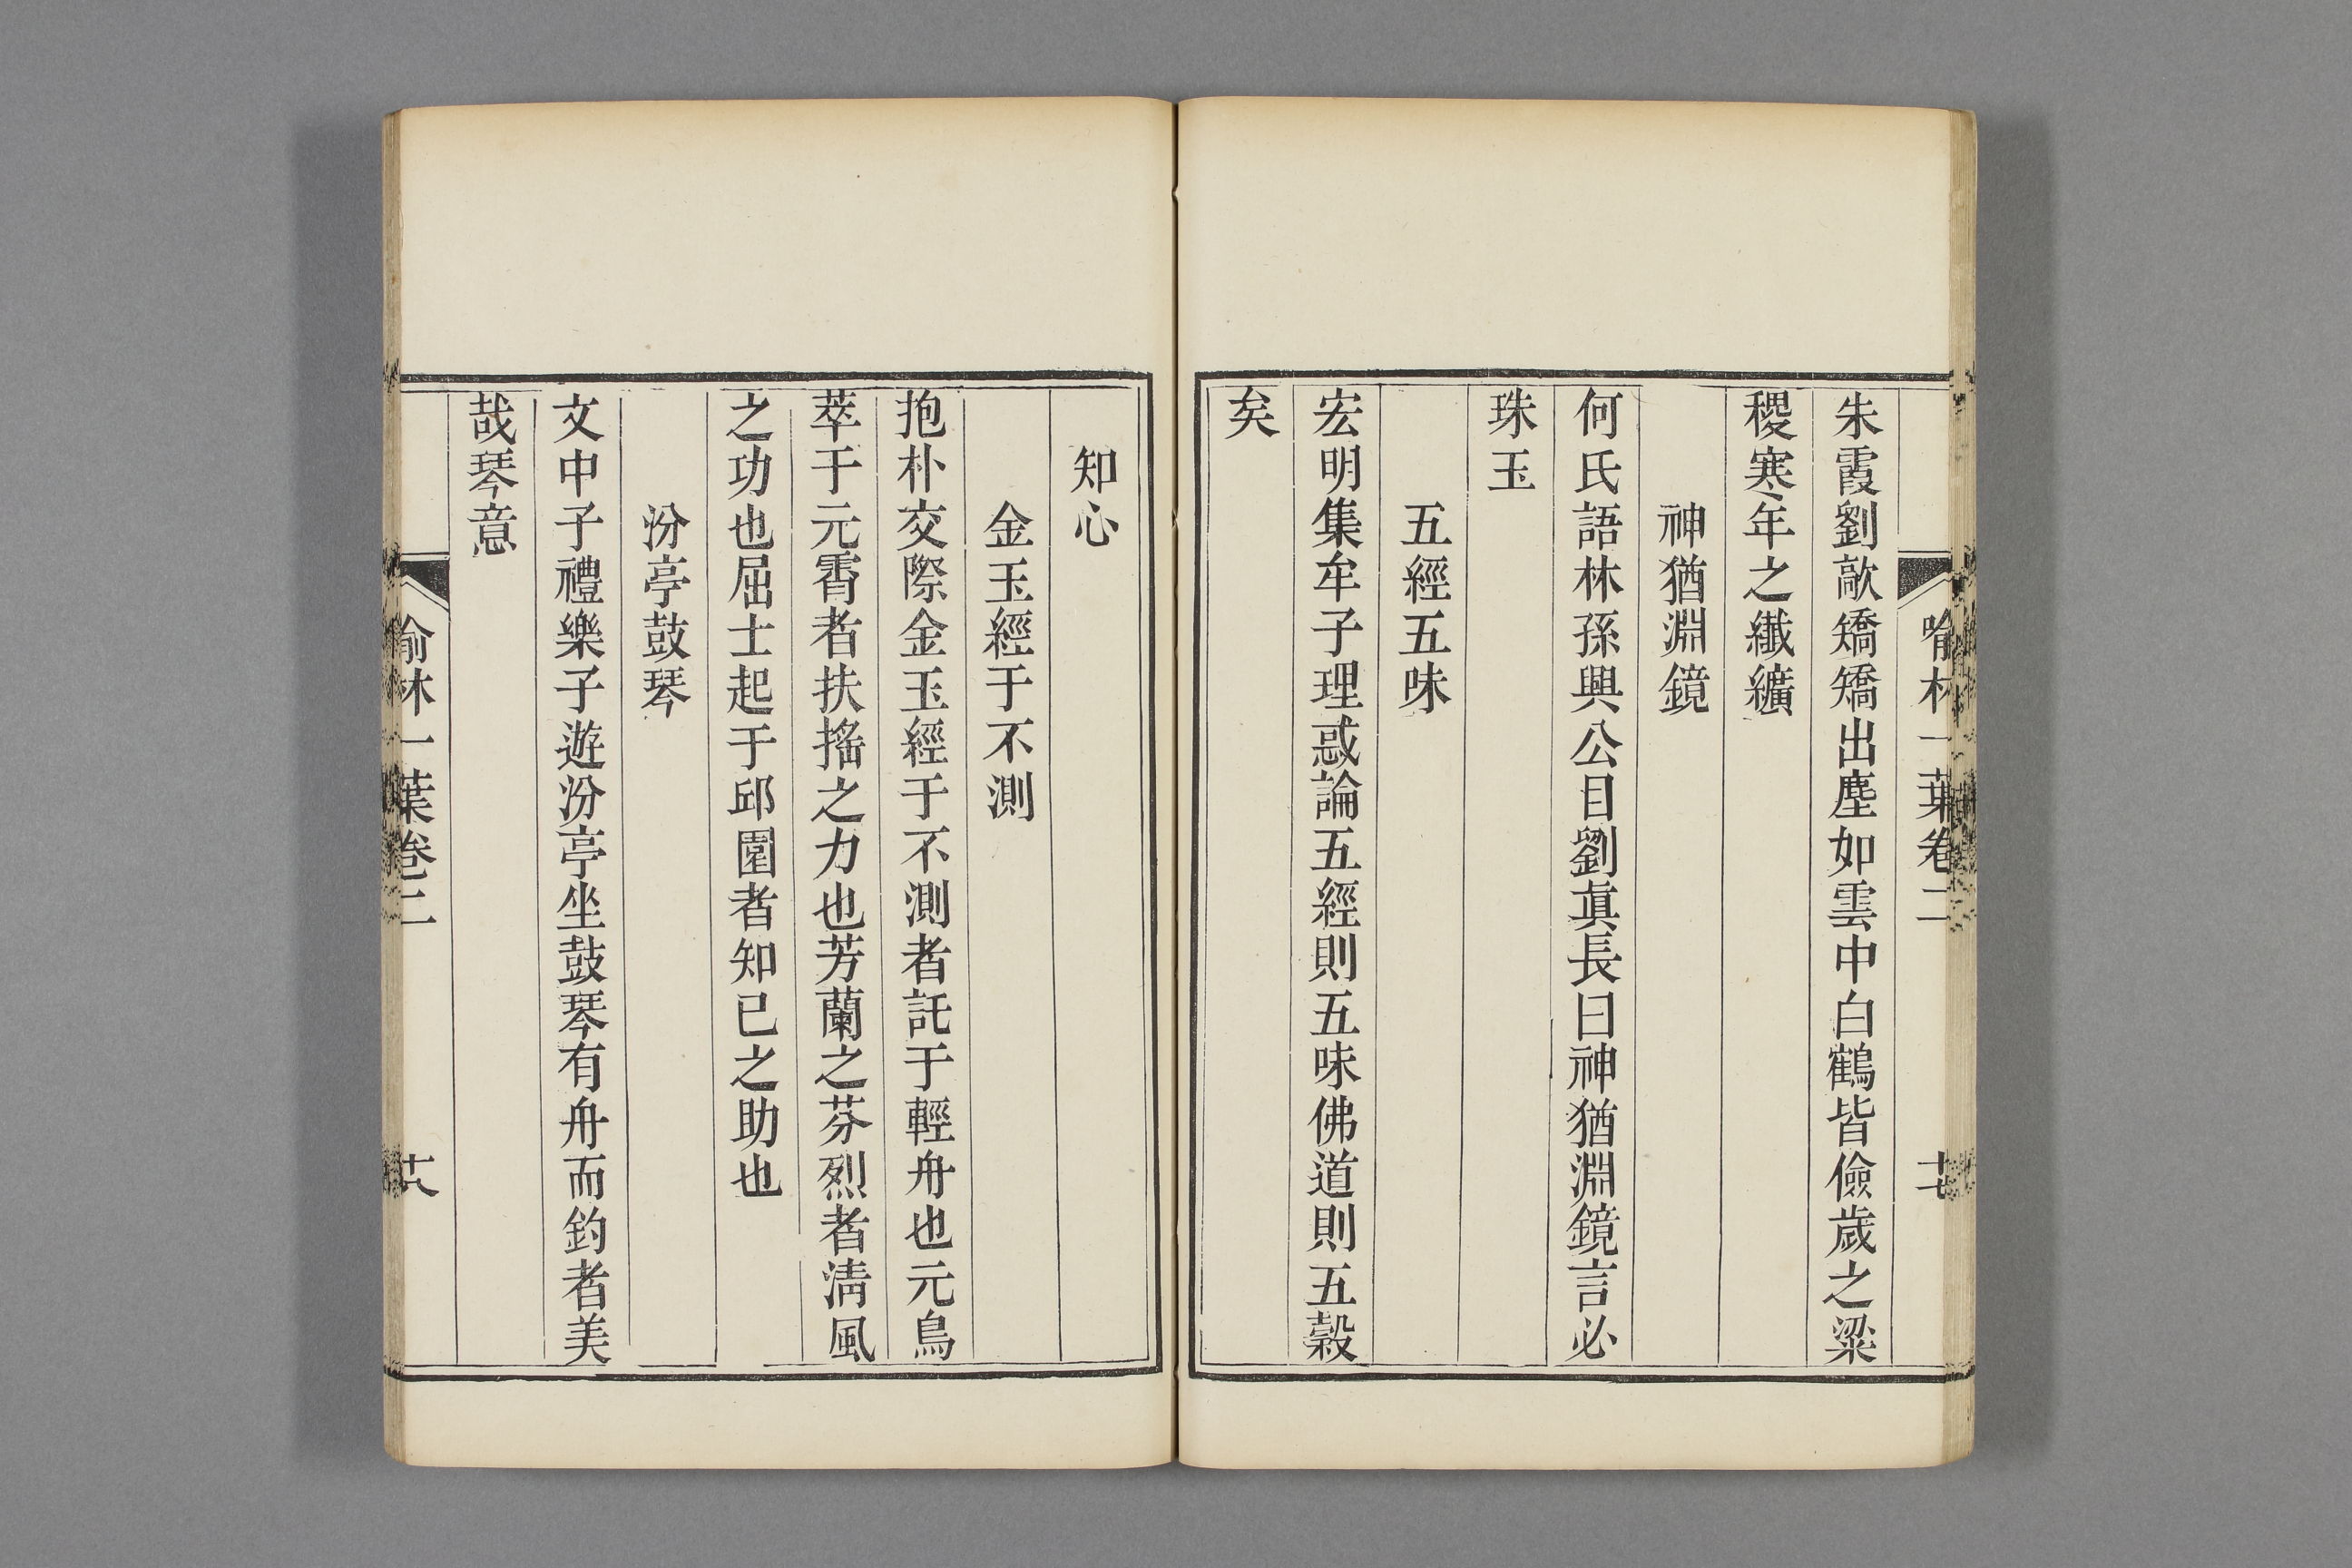 喻林一葉卷二
十七
朱霞劉歊矯矯出塵如雲中白鶴皆儉歲之粱
稷寒年之纖纊
神猶淵鏡
何氏語林孫興公目劉眞長曰神猶淵鏡言必
珠玉
五經五味
宏明集牟子理惑論五經則五味佛道則五穀
矣
知心
金玉經于不測
抱朴交際金玉經于不測者託于輕舟也元鳥
萃于元霄者扶搖之力也芳蘭之芬烈者清風
之功也屈士起于邱園者知已之助也
汾亭鼓琴
文中子禮樂子遊汾亭坐鼓琴有舟而釣者美
哉琴意
喻林一葉卷二
十八